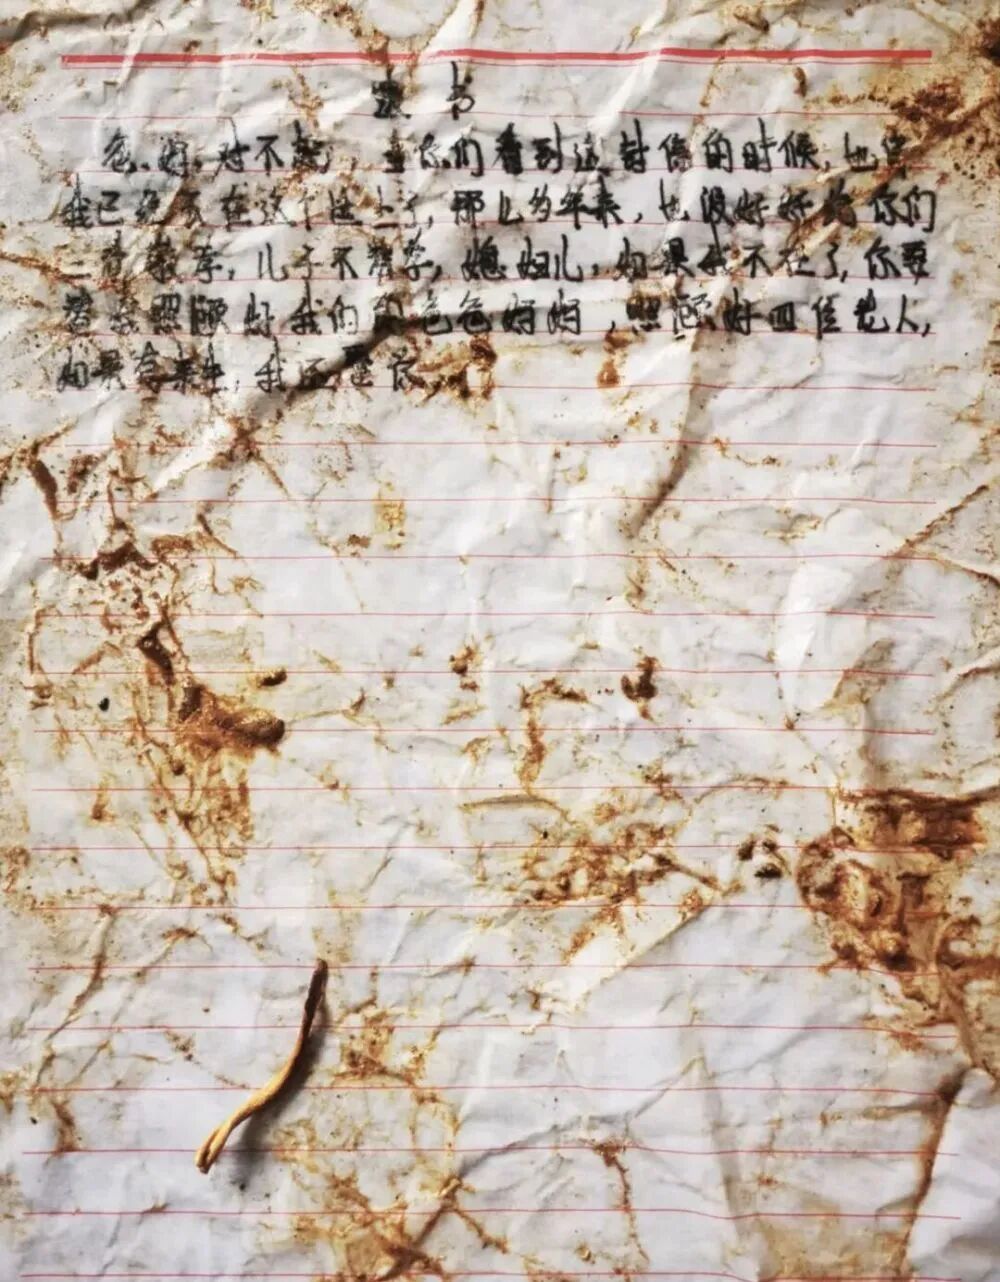 书
爸、妈，对不起，当你们看到这封信的时候，也许
我已经不在这个世上了，那么多年来，也没好好为你们
二老敬孝，儿子不敬孝，媳妇儿，如果我不在了，你要
替我照顾好我们的爸爸妈妈，照顾好四位老人，
如果有来生，我还是你